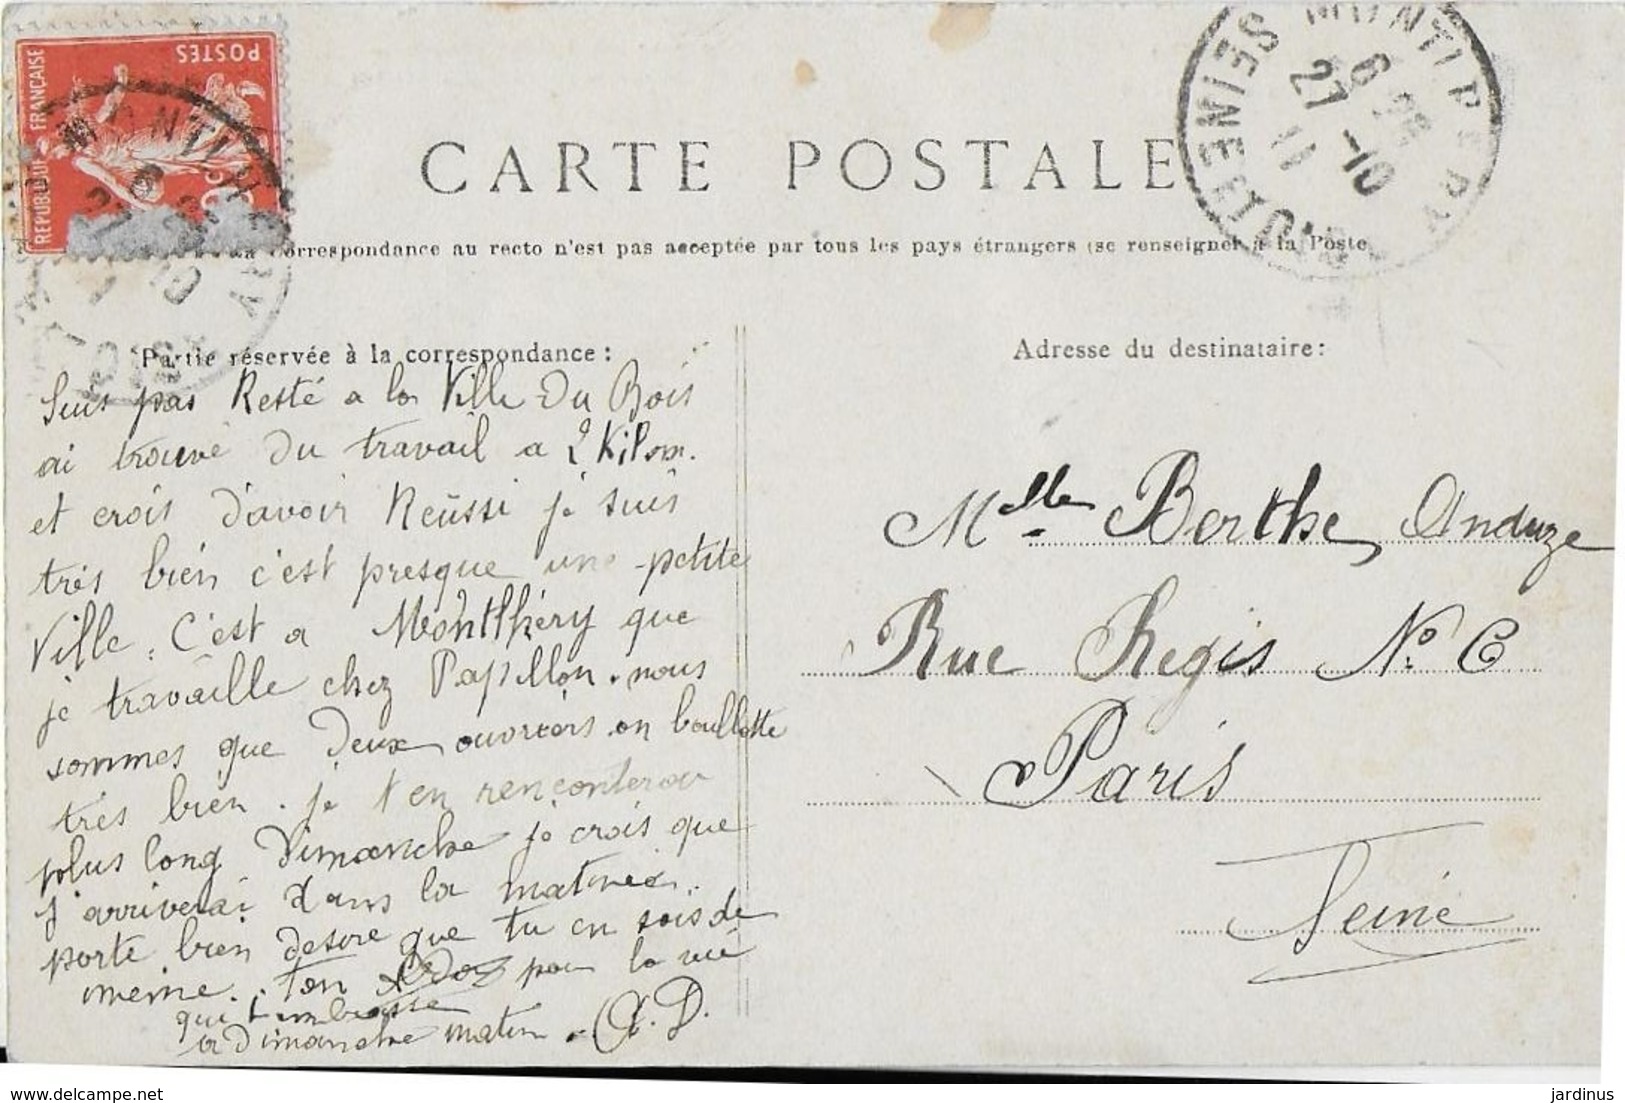 POSTES
REPUBLIQUE FRANÇAISE
MONTLHERY
6 25
27 -10
11
SEINE
CARTE POSTALE
correspondance au recto n'est pas acceptée par tous les pays étrangers (se renseigner à la Poste
Partie réservée à la correspondance :
Suis pas Resté a la Ville Du Bois
ai trouvé du travail a 2 Kilom.
et crois d'avoir Reüssi je suis
très bien c'est presque une petite
Ville. C'est a Monthléry que
je travaille chez Papillon. nous
sommes que Deux ouvriers on boullotte
très bien. je t'en renconterai
plus long Dimanche je crois que
j'arriverai dans la matinée.
porte bien desire que tu en sois de
meme. ton pour la vie
qui t'embrasse
a Dimanche matin. A. D.
Adresse du destinataire :
Mlle Berthe Anduze
Rue Regis No 6
Paris
Seine
jardinus